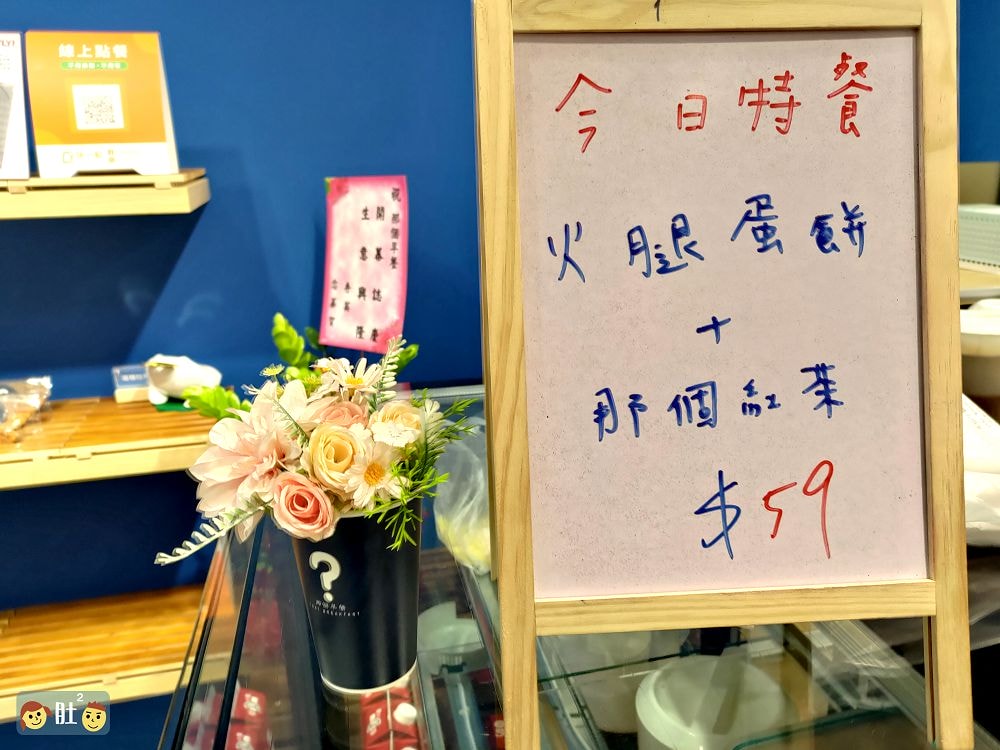 線上點餐
祝 那個早餐
開幕誌慶
生意興隆
今日特餐
火腿蛋餅
+
那個紅茶
$59
?
那個早餐
肚2